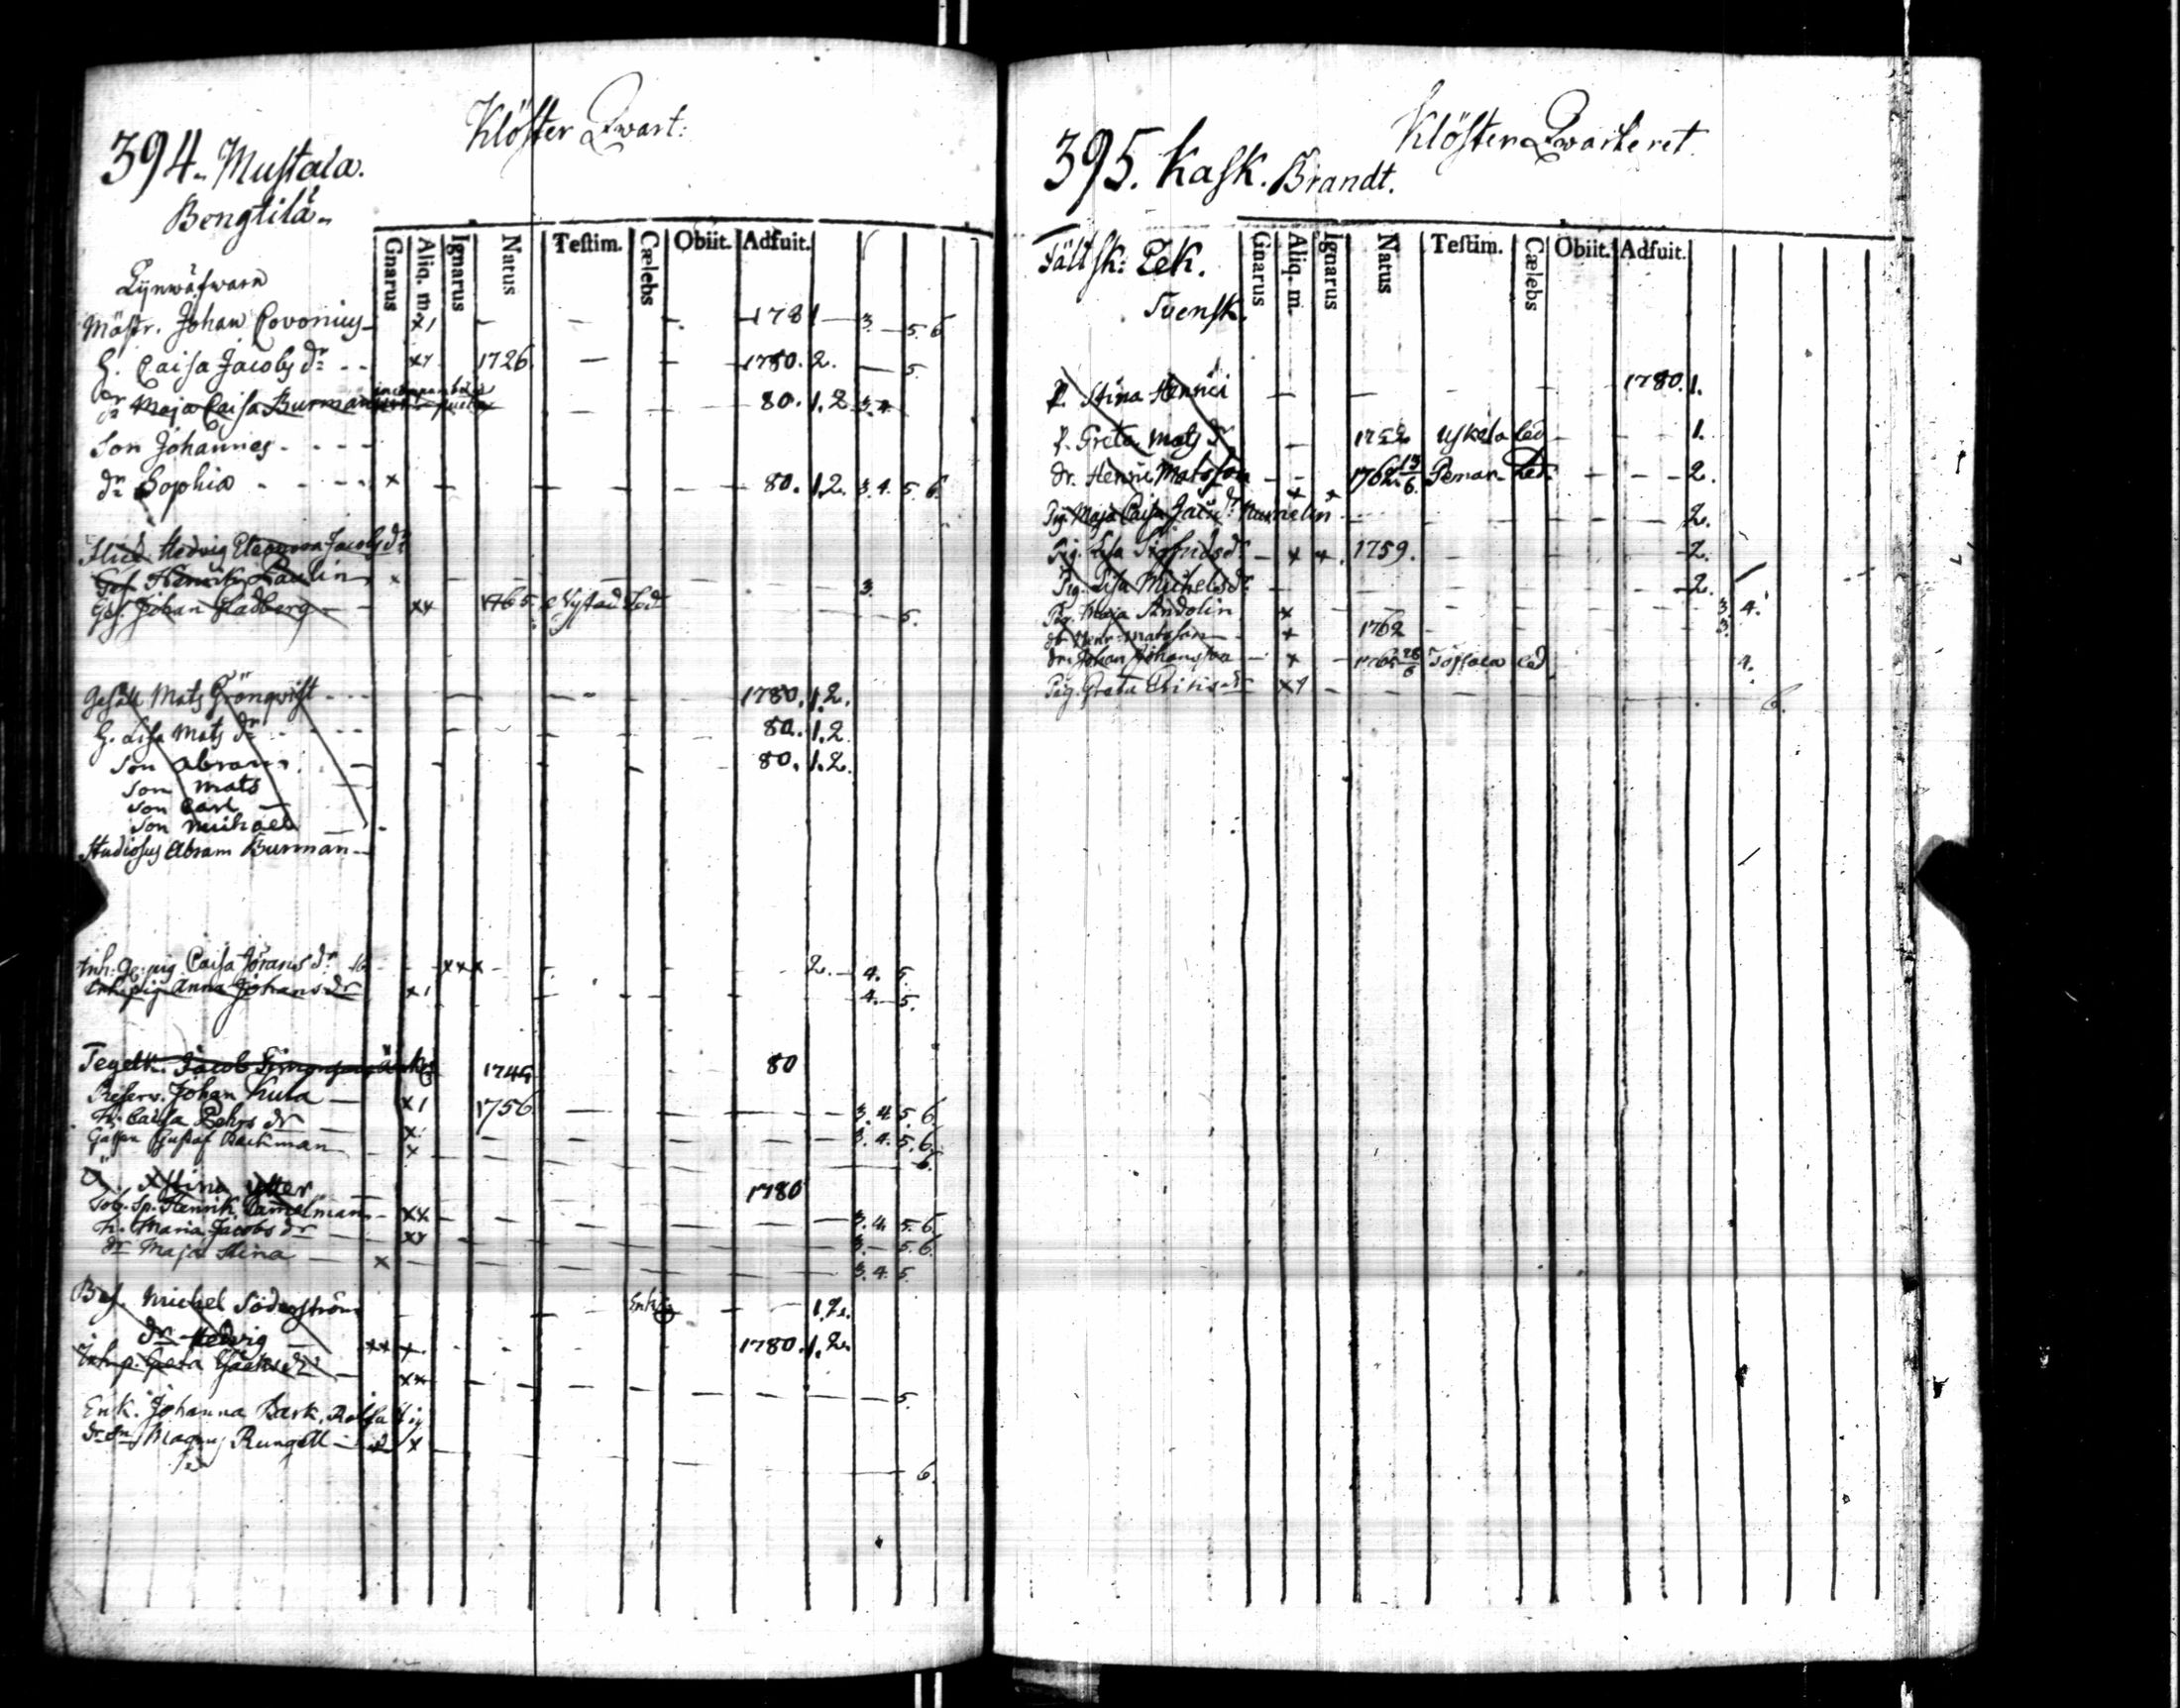 Klöster Qwart:
394. Mustala.
Bengtilä
Gnarus Aliq. m. Ignarus Natus Testim. Cælebs Obiit. Adfuit.
Lijnwäfware
Mästr. Johan Covonius x1 - - - 1781 - 3. - 5 6
H. Caisa Jacobs dr - - xx 1726 - - 1780. 2. - 5.
dr Maja Caisa Burman - - - 80. 1.2 3.4
Son Johannes - - - -
dr Sophia - - - - x - - - - - 80. 1.2. 3.4. 5. 6.
Hedvig Eleonora Jacobs dr
Gef. Henrik Paulin x - - - - - - 3.
Gef. Johan Hadberg - - xx 1765 Nystad Led - - 5.
Gesäll Mats Grönqwist - - - - - - - - 1780. 1.2.
H. Lisa Mats dr - - - - - - - 80. 1.2
Son Abram - - - - - 80. 1.2.
Son Mats
Son Carl -
Son Michael -
Studiosus Abram Burman -
Inh. pig Caisa Jörans dr - - xxx - - - - 2. - 4. 5.
Inh. pig Anna Johans dr x1 - - - - 4. - 5.
Tegelk. Jacob Simonsson 1744 80
Reserv. Johan Kula - x1 1756 - - - - - 3. 4. 5. 6.
H. Caisa Pehrs dr - x - - - - - - 3. 4. 5. 6.
Gustaf Backman - x - - - - - - 6.
Stina - 1780
Henrik Camelman - xx - - - - - - - 3. 4. 5. 6
H. Maria Jacobs dr - xx - - - - - - - 3. - 5. 6.
dr Maja Stina - x - - - - - - - 3. 4. 5.
Michel Söderström - - - - - - 1.2.
dr Hedvig - xx x - - - - 1780. 1.2.
Inh. p. Greta - xx - - - - - - - 5.
Enk. Johanna Bark,
Magnus Rungell - x - - - - - - 6.
Klöster Qwarteret.
395. Kask. Brandt.
Gnarus Aliq. m. Ignarus Natus Testim. Cælebs Obiit. Adfuit.
Fältsk: Pek.
Svensk.
P. Stina Henrici - - - - 1780. 1.
P. Greta Mats dr - 1752 Uskela led - - 1.
dr. Henric Matsson - - 1762 13/6 Pemar. Led. - - - 2.
Pig. Maja Caisa dr Numelin - - - - - 2.
Pig. Lisa Sigfrids dr - x x. 1759. - - - - 2.
Pig. Lisa Michels dr - - - - - - - 2.
Pig. Maja Andolin x - - - - - - 3 4.
dr. Henr. Matsson - x 1762 - - - - 3.
dr. Johan Johansson - x - 1765 26/6 led - - 4.
Pig. Greta dr xx - - - - - - - 6.